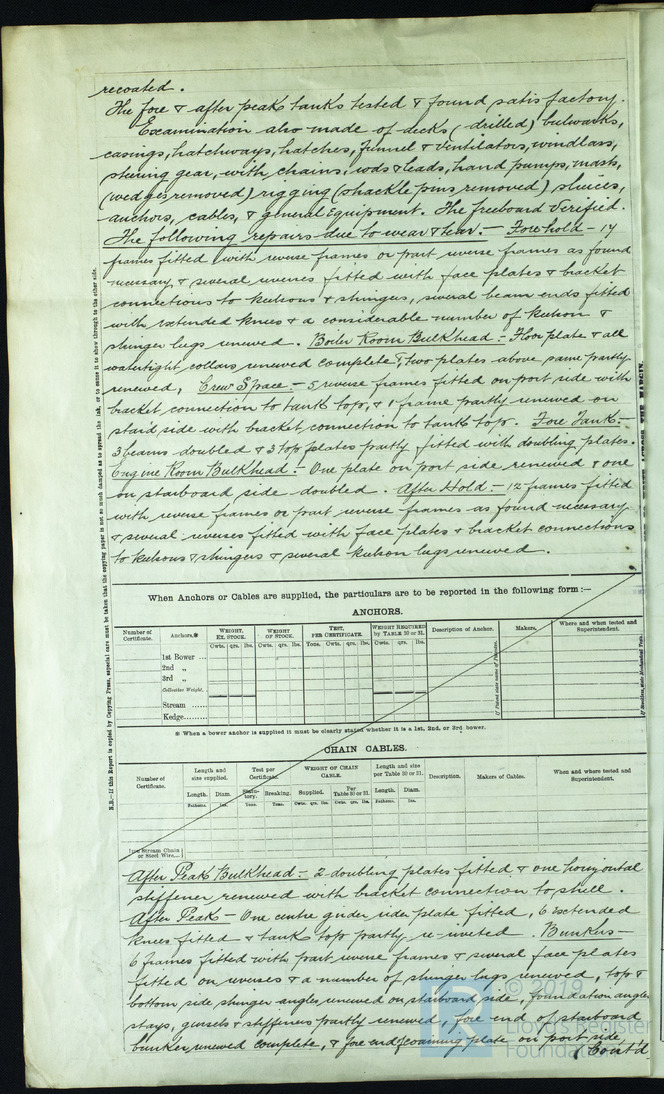 recoated.
The fore & after peak tanks tested & found satisfactory.
Examination also made of decks (drilled) bulwarks,
casings, hatchways, hatches, funnel & ventilators, windlass,
steering gear, with chains, rods & leads, hand pumps, masts,
(wedges removed) rigging (shackle pins removed) sluices,
anchors, cables, & general Equipment. The freeboard Verified.
The following repairs due to wear & tear. - Fore hold - 17
frames fitted with reverse frames or part reverse frames as found
necessary, & several reverses fitted with face plates & bracket
connections to keelsons & stringers, several beam ends fitted
with extended knees & a considerable number of keelson &
stringer lugs renewed. Boiler Room Bulkhead :- Floor plate & all
watertight collars renewed complete, two plates above same partly
renewed, Crew Space :- 5 reverse frames fitted on port side with
bracket connection to tank top, & 1 frame partly renewed on
starbd side with bracket connection to tank top. Fore Tank :-
3 beams doubled & 3 top plates partly fitted with doubling plates.
Engine Room Bulkhead :- One plate on port side renewed & one
on starboard side doubled. After Hold :- 12 frames fitted
with reverse frames or part reverse frames as found necessary
& several reverses fitted with face plates & bracket connections
to keelsons & stringers & several keelson lugs renewed.
N.B.—If this Report is copied by Copying Press, especial care must be taken that the copying paper is not so much damped as to spread the ink, or to cause it to show through to the other side.
When Anchors or Cables are supplied, the particulars are to be reported in the following form :—
ANCHORS.
Number of Certificate. Anchors.* WEIGHT, EX. STOCK. WEIGHT OF STOCK. TEST, PER CERTIFICATE. WEIGHT REQUIRED by TABLE 30 or 31. Description of Anchor. Makers. Where and when tested and Superintendent.
Cwts. qrs. lbs. Cwts. qrs. lbs. Tons. Cwts. qrs. lbs. Cwts. qrs. lbs.
1st Bower ...
2nd „
3rd „
Collective Weight.
Stream ......
Kedge.......
* When a bower anchor is supplied it must be clearly stated whether it is a 1st, 2nd, or 3rd bower.
CHAIN CABLES.
Number of Certificate. Length and size supplied. Test per Certificate. WEIGHT OF CHAIN CABLE. Length and size per Table 30 or 31. Description. Makers of Cables. When and where tested and Superintendent.
Length. Diam. Statutory. Breaking. Supplied. Per Table 30 or 31. Length. Diam.
Fathoms. Ins. Tons. Tons. Cwts. qrs. lbs. Cwts. qrs. lbs. Fathoms. Ins.
Iron Stream Chain or Steel Wire....
After Peak Bulkhead :- 2 doubling plates fitted, & one horizontal
stiffener renewed with bracket connection to shell.
After Peak - One centre girder side plate fitted, 6 extended
knees fitted & tank top partly re-riveted. Bunkers -
6 frames fitted with part reverse frames & several face plates
fitted on reverses & a number of stringer lugs renewed, top &
bottom side stringer angles renewed on starboard side, foundation angles
stays, gussets & stiffeners partly renewed, fore end of starboard
bunker renewed complete, & fore end coaming plate on port side,
Cont'd
© 2019
Lloyd's Register
Foundation